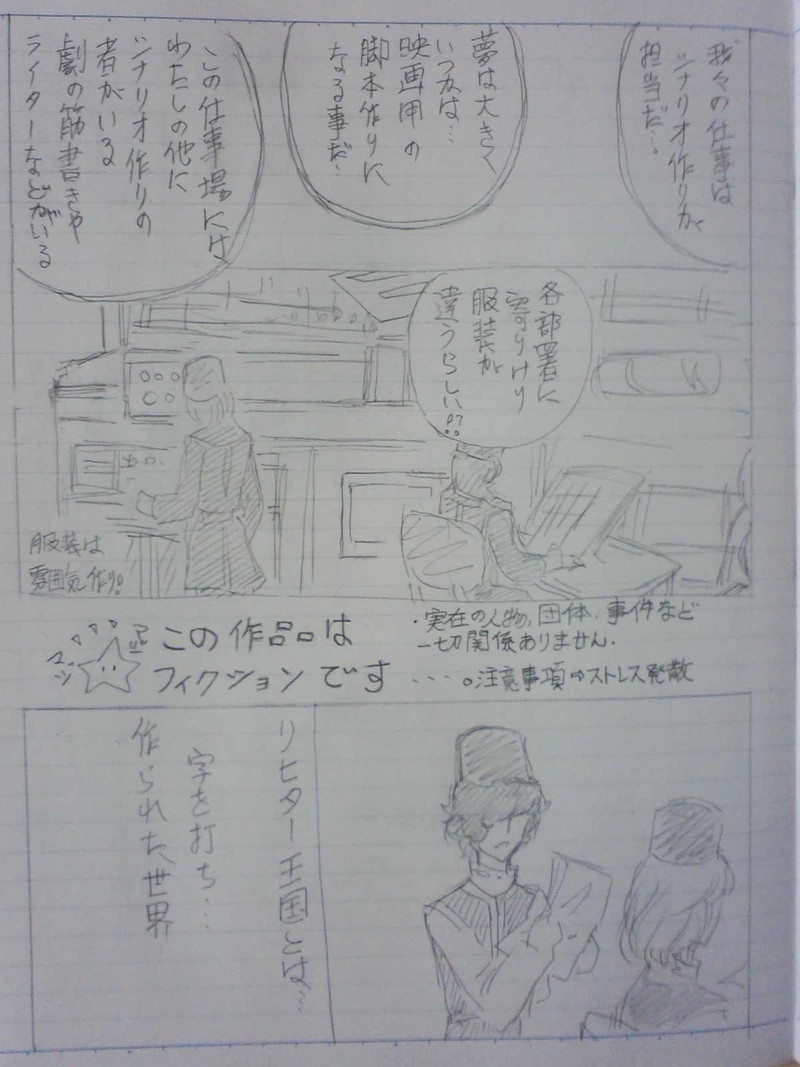 我々の仕事は
シナリオ作りが
担当だ…。
夢は大きく
いつかは…
映画用の
脚本作りに
なる事だ…
この仕事場には
わたしの他に
シナリオ作りの
者がいる
劇の筋書きや
ライターなどがいる
各部署に
寄りけり
服装が
違うらしい!?
服装は
雰囲気作り。
この作品は
フィクションです
・実在の人物、団体、事件など
一切関係ありません.
・・・。注意事項⇨ストレス発散
リヒター王国とは…
字を打ち…
作られた世界